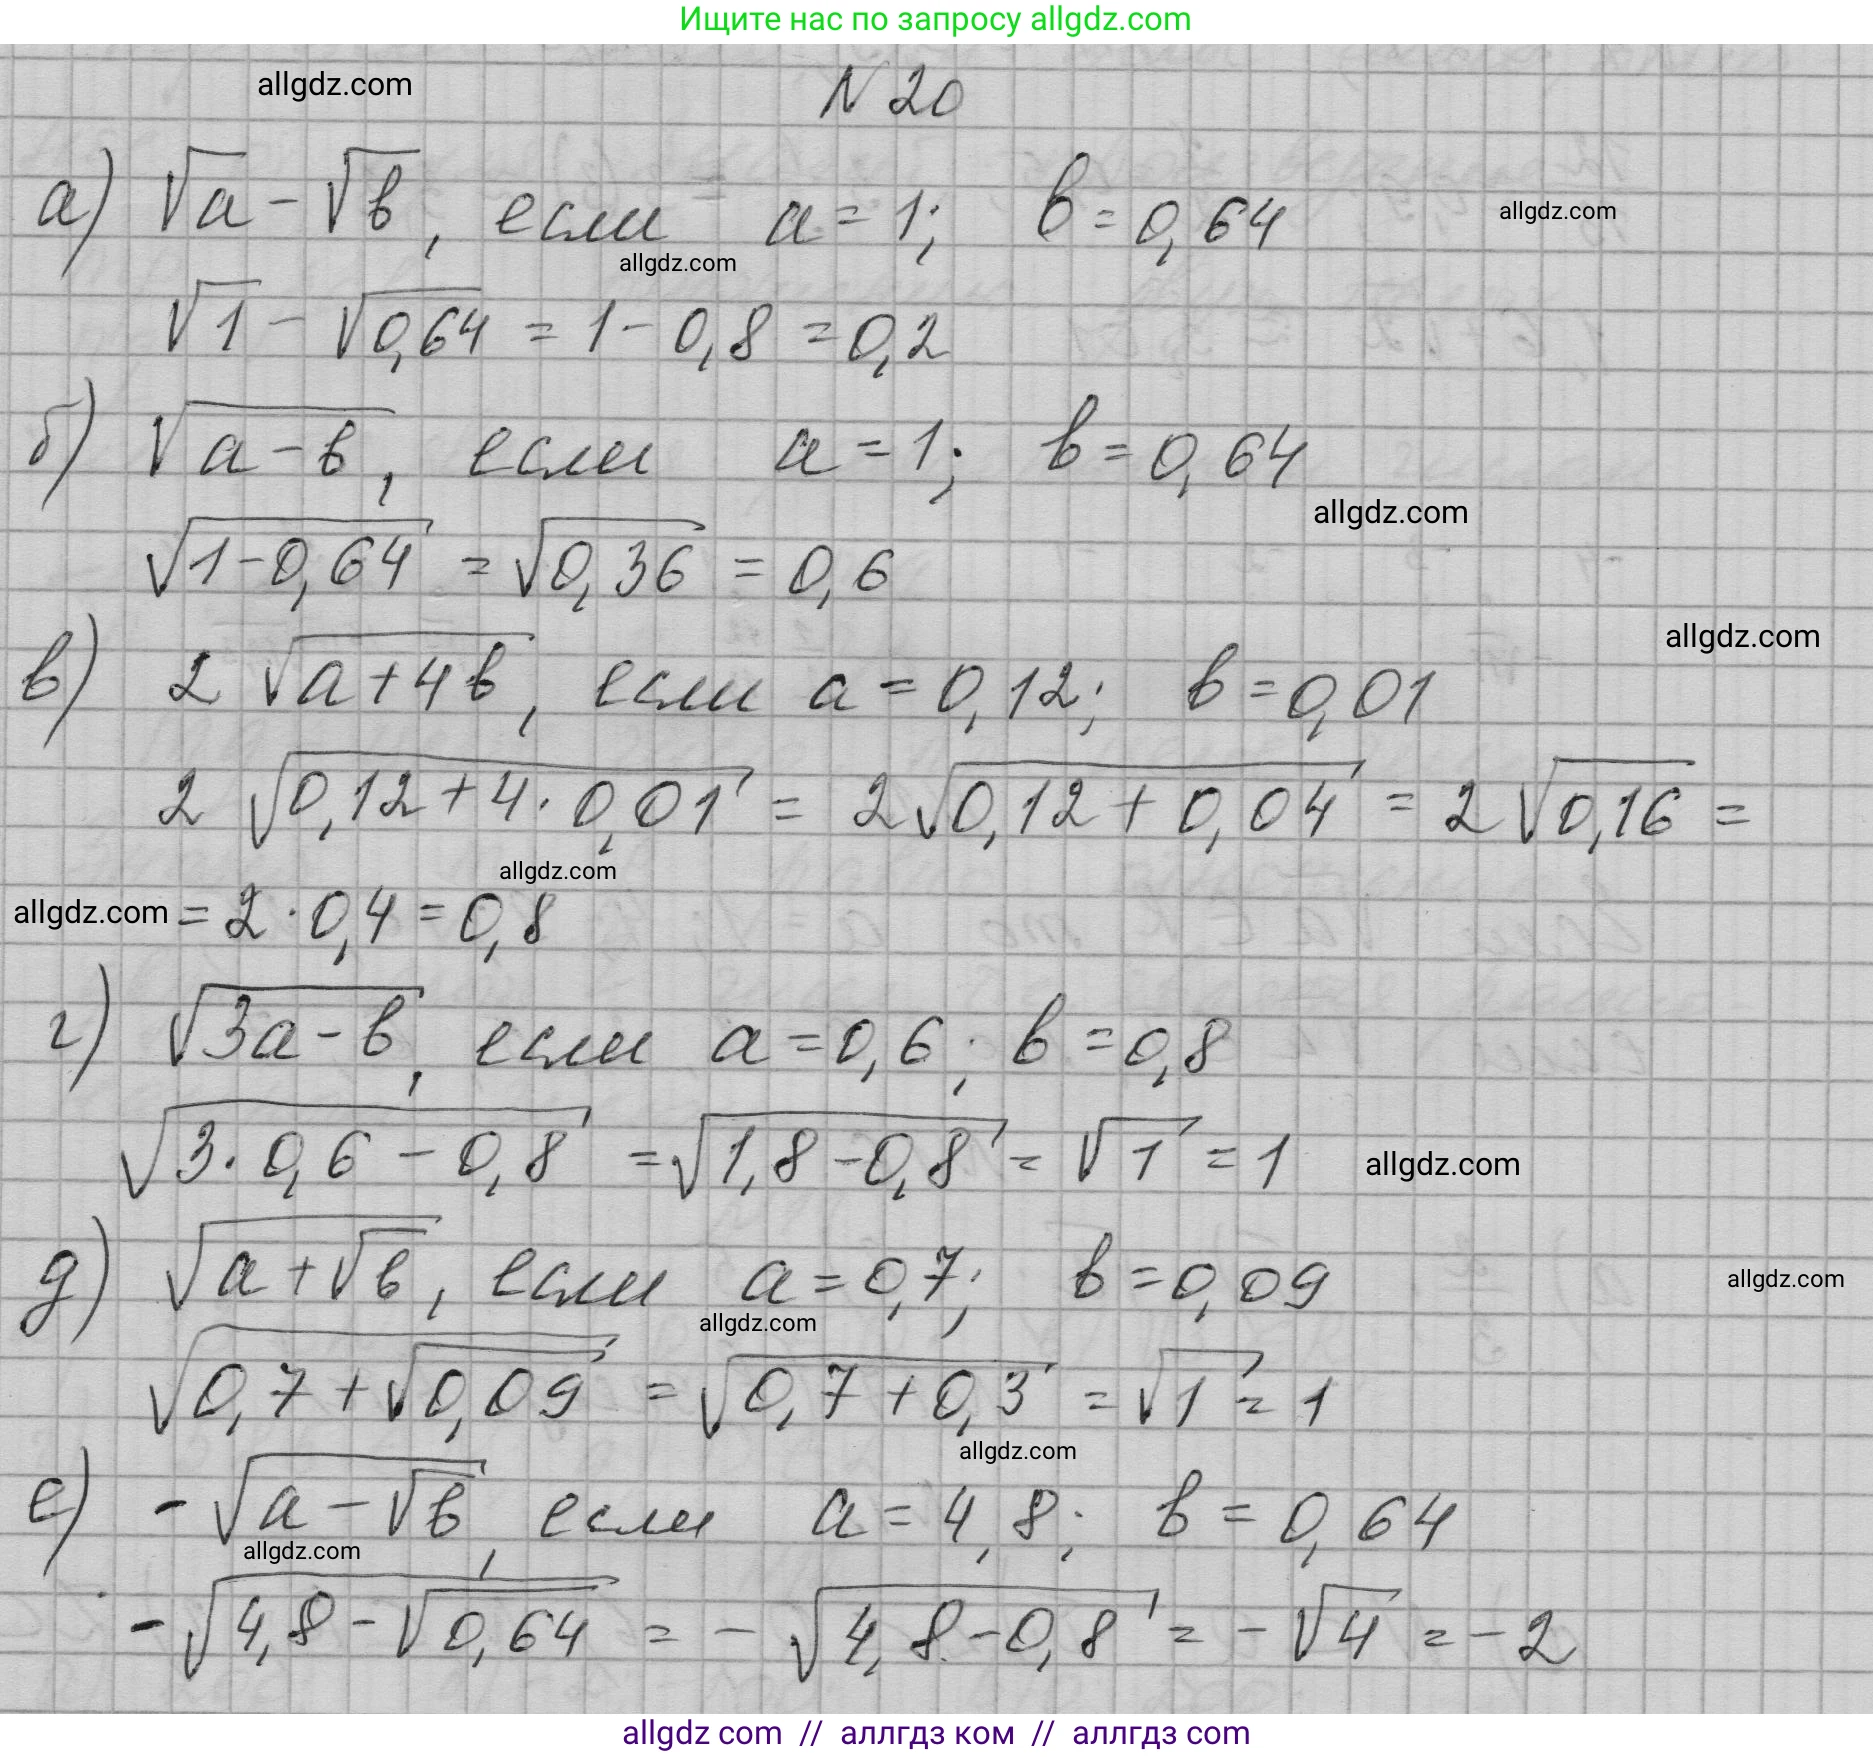 Ищите нас по запросу allgdz.com
allgdz.com
N 20
а) √a - √b, если a = 1; b = 0,64
allgdz.com
allgdz.com
√1 - √0,64 = 1 - 0,8 = 0,2
б) √(a - b), если a = 1; b = 0,64
allgdz.com
√(1 - 0,64) = √0,36 = 0,6
allgdz.com
в) 2√(a + 4b), если a = 0,12; b = 0,01
2√(0,12 + 4 · 0,01) = 2√(0,12 + 0,04) = 2√0,16 =
allgdz.com
allgdz.com
= 2 · 0,4 = 0,8
г) √(3a - b), если a = 0,6; b = 0,8
√(3 · 0,6 - 0,8) = √(1,8 - 0,8) = √1 = 1
allgdz.com
д) √(a + √b), если a = 0,7; b = 0,09
allgdz.com
allgdz.com
√(0,7 + √0,09) = √(0,7 + 0,3) = √1 = 1
allgdz.com
е) -√(a - √b), если a = 4,8; b = 0,64
allgdz.com
-√(4,8 - √0,64) = -√(4,8 - 0,8) = -√4 = -2
allgdz com // аллгдз ком // аллгдз com